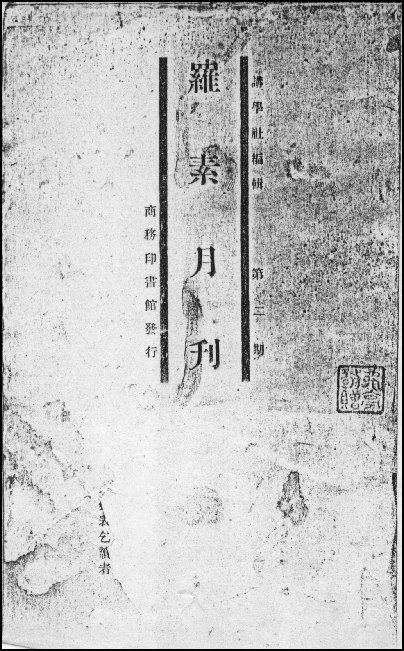 講學社編輯 第二期
羅素月刊
商務印書館發行